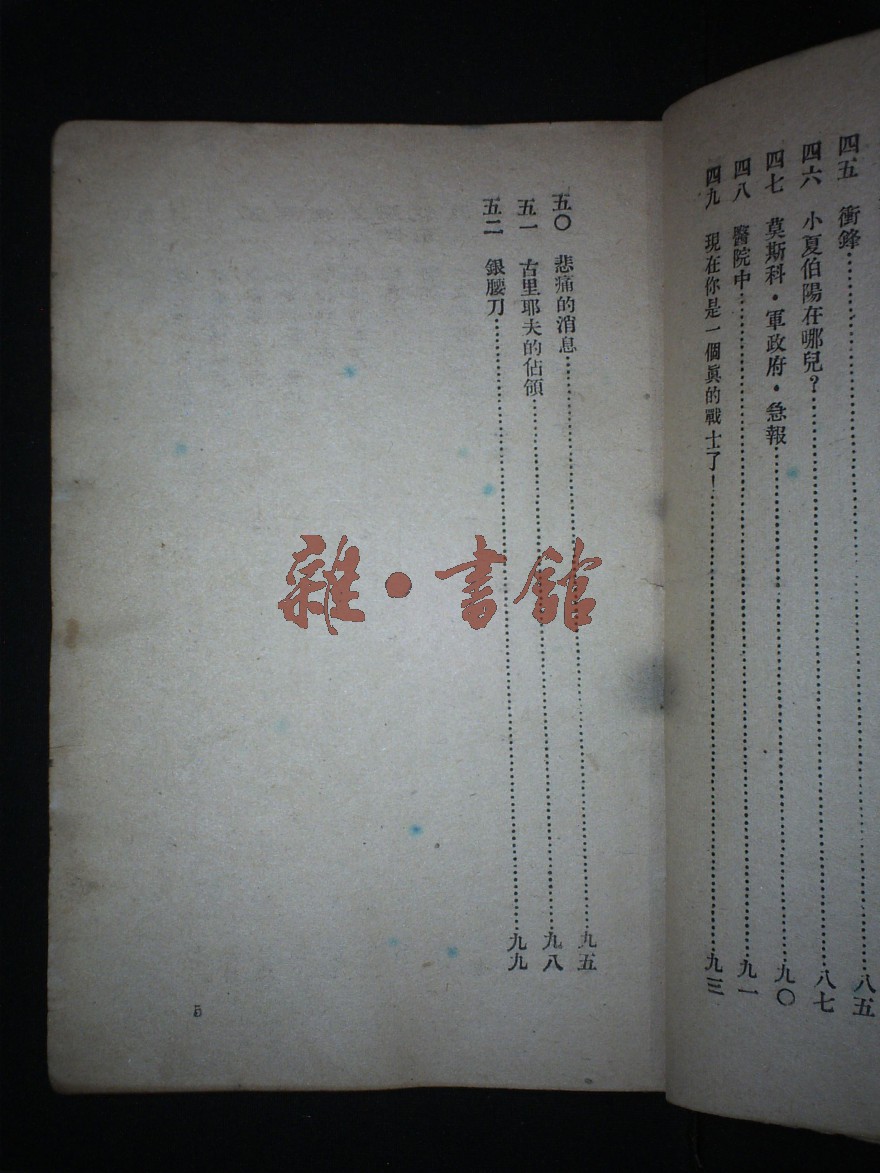 四五　衝鋒……八五
四六　小夏伯陽在哪兒？……八七
四七　莫斯科・軍政府・急報……九〇
四八　醫院中……九一
四九　現在你是一個眞的戰士了！……九三
五〇　悲痛的消息……九五
五一　古里耶夫的佔領……九八
五二　銀腰刀……九九
5
雜・書館